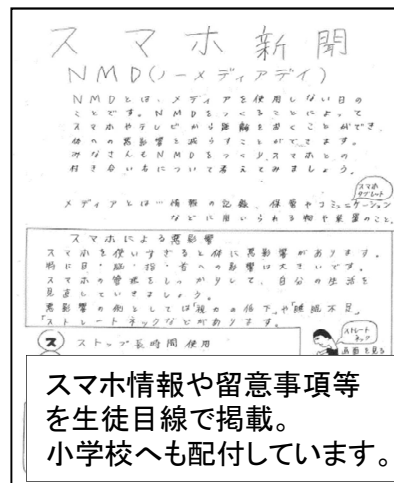 スマホ新聞
NMD(ノーメディアデイ)
NMDとは、メディアを使用しない日の
ことです。NMDをつくることによって
スマホやテレビから距離を置くことができ、
体への悪影響を減らすことができます。
みなさんもNMDをつくり、スマホとの
付き合い方について考えてみましょう。
スマホ
タブレット
メディアとは…情報の記録、保管やコミュニケーション
などに用いられる物や装置のこと。
スマホによる悪影響
スマホを使いすぎると体に悪影響があります。
特に目・脳・指・首への影響は大きいです。
スマホの管理をしっかりして、自分の生活を
見直していきましょう。
悪影響の例としては「視力の低下」や「睡眠不足」
「ストレートネックなどがあります。
ス ストップ長時間使用
ストレート
ネック
画面を見る
スマホ情報や留意事項等
を生徒目線で掲載。
小学校へも配付しています。